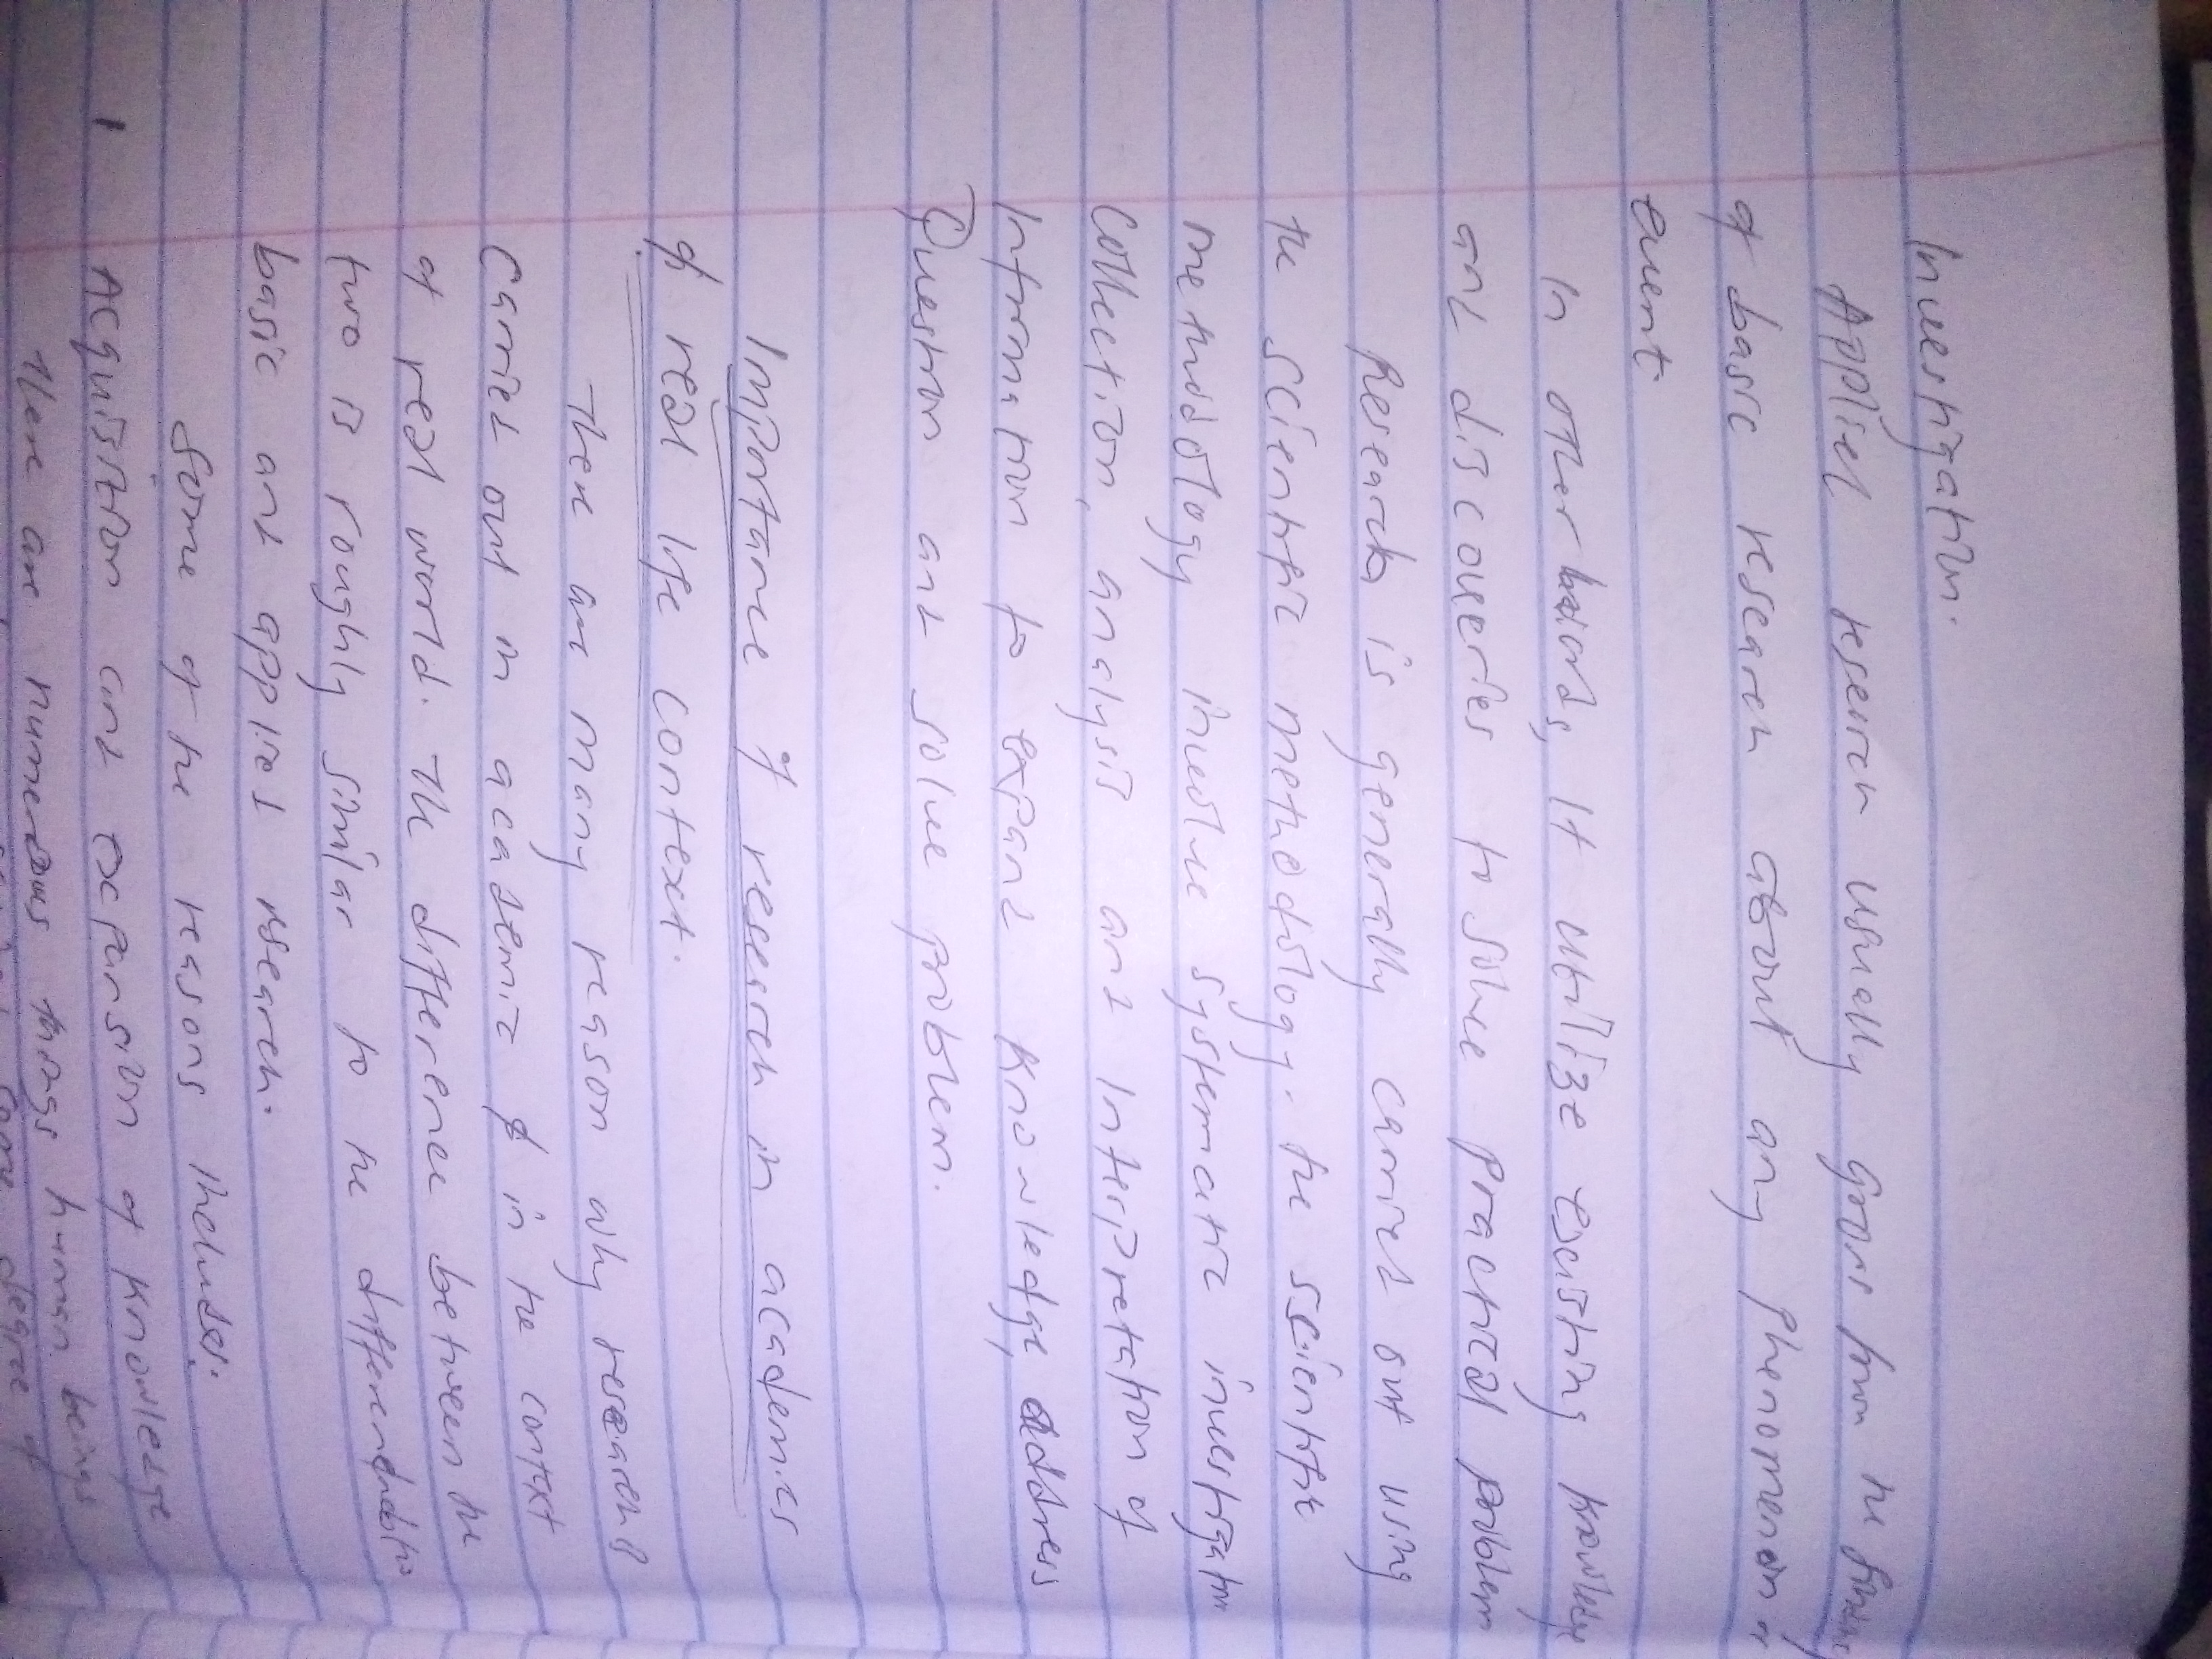 Investigation.
Applied research usually grows from the
of basic research about any phenomenon or
event.
In other words, It utilize existing knowledge
and discoveries to solve practical problem
Research is generally carried out using
the scientific methodology. the scientific
methodology involve systematic investigation
Collection, analysis and Interpretation of
Information to expand knowledge, address
Question and solve problem.
Importance of research in academics
& real life context.
There are many reason why research is
Carried out in academic & in the context
of real world. The difference between the
two is roughly similar to the
basic and applied research.
Some of the reasons includes.
1 Acquisition and expansion of knowledge
There are numerous things human beings
some degree of